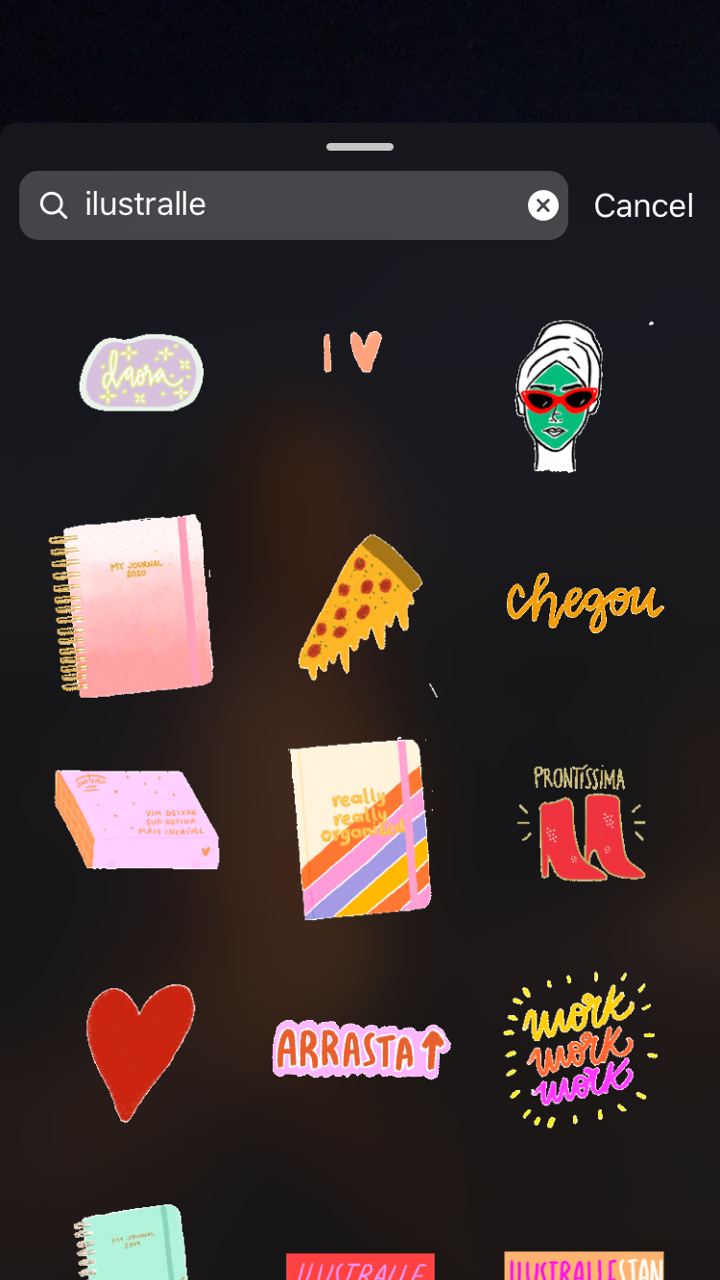 ilustralle
Cancel
daora
I
MY JOURNAL
2020
chegou
VIM DEIXAR
SUA ROTINA
MAIS INCRÍVEL
really
really
organized
PRONTÍSSIMA
ARRASTA
work
work
work
MY JOURNAL
ILUSTRALLE
ILUSTRALLESTAN